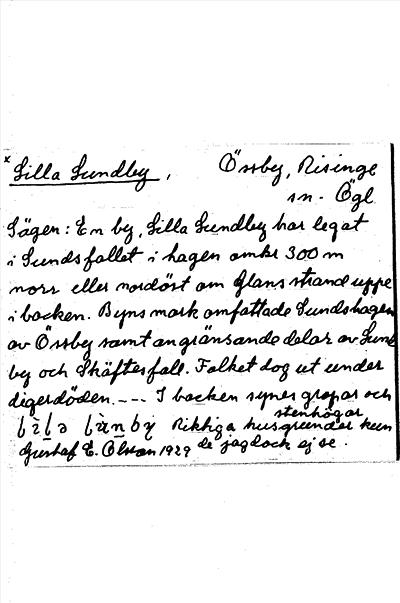 x Lilla Lundby, Össby, Risinge
sn. Ögl
Sägen: En by, Lilla Lundby har legat
i Lundsfallet i hagen omkr 300 m
norr eller nordöst om Glans strand uppe
i backen. Byns mark omfattade Lundshagen
av Össby samt angränsande delar av Lund
by och Skäftesfall. Folket dog ut under
digerdöden. --- I backen synes gropar och
stenhögar
Riktiga husgrunder kun
Gustaf E. Olsson 1929 de jag dock ej se.